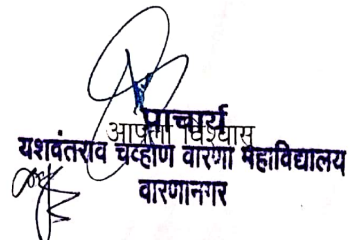 प्राचार्य
आपला विश्वास
यशवंतराव चव्हाण वारणा महाविद्यालय
वारणानगर